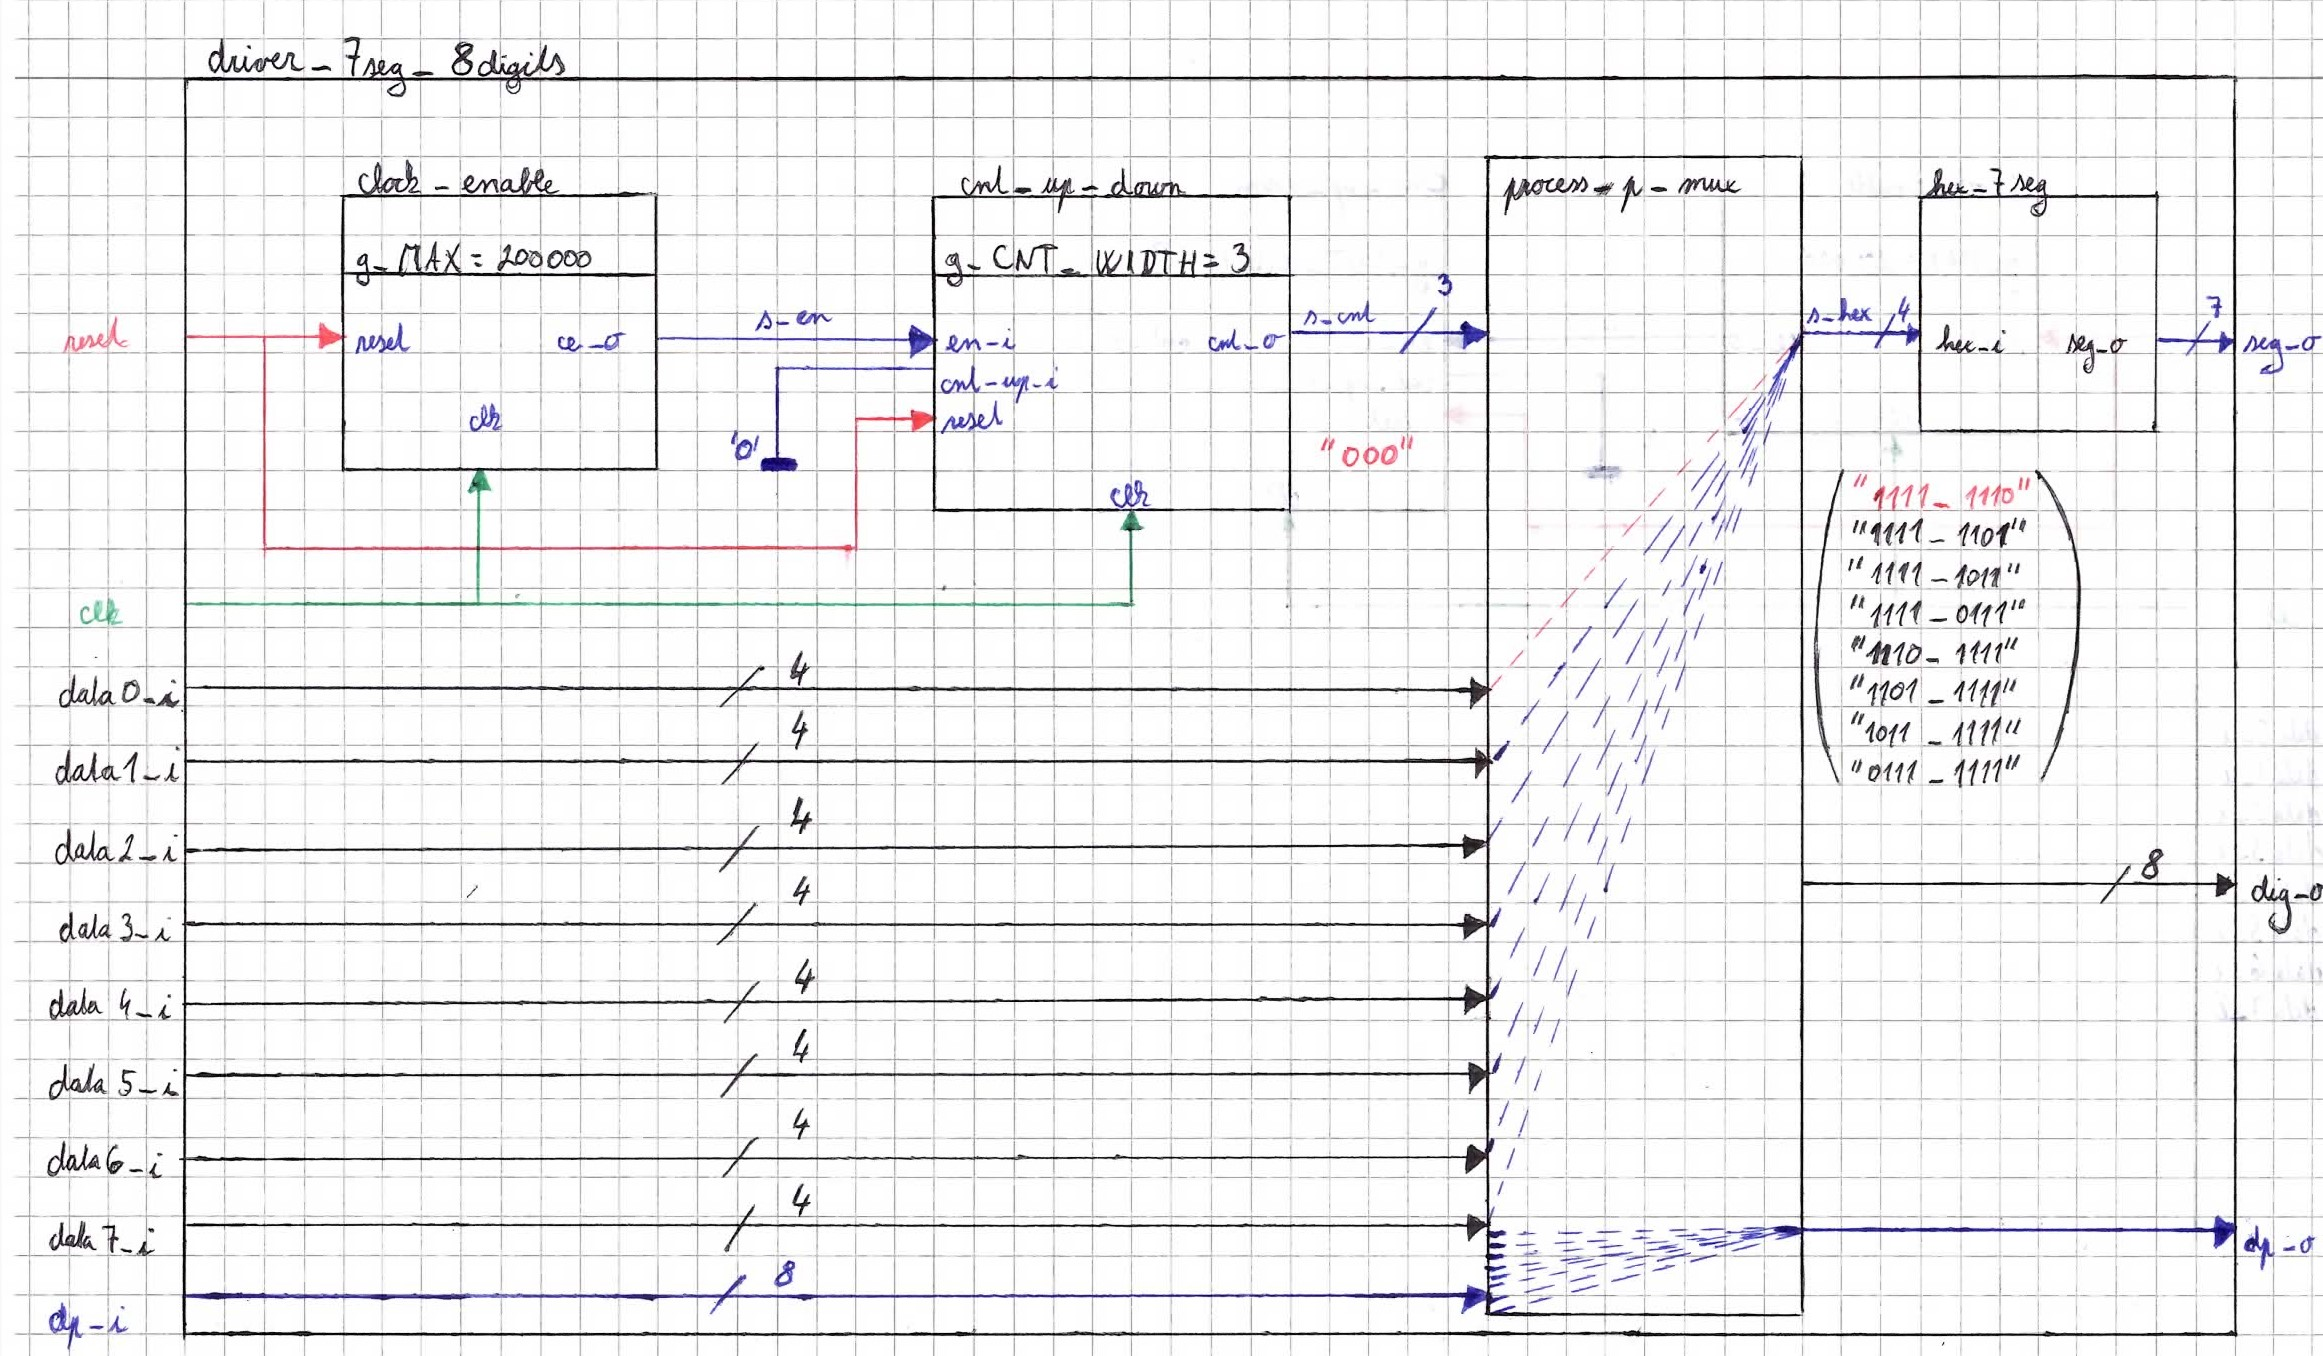 driver_7seg_8digits
clock_enable
g_MAX = 200000
reset
ce_o
clk
s_en
'0'
cnt_up_down
g_CNT_WIDTH = 3
en_i
cnt_up_i
reset
cnt_o
clk
s_cnt
3
"000"
process_p_mux
s_hex
4
hex_7seg
hex_i
seg_o
7
seg_o
"1111_1110"
"1111_1101"
"1111_1011"
"1111_0111"
"1110_1111"
"1101_1111"
"1011_1111"
"0111_1111"
reset
clk
data0_i
4
data1_i
4
data2_i
4
data3_i
4
data4_i
4
data5_i
4
data6_i
4
data7_i
4
dp_i
8
8
dig_o
dp_o